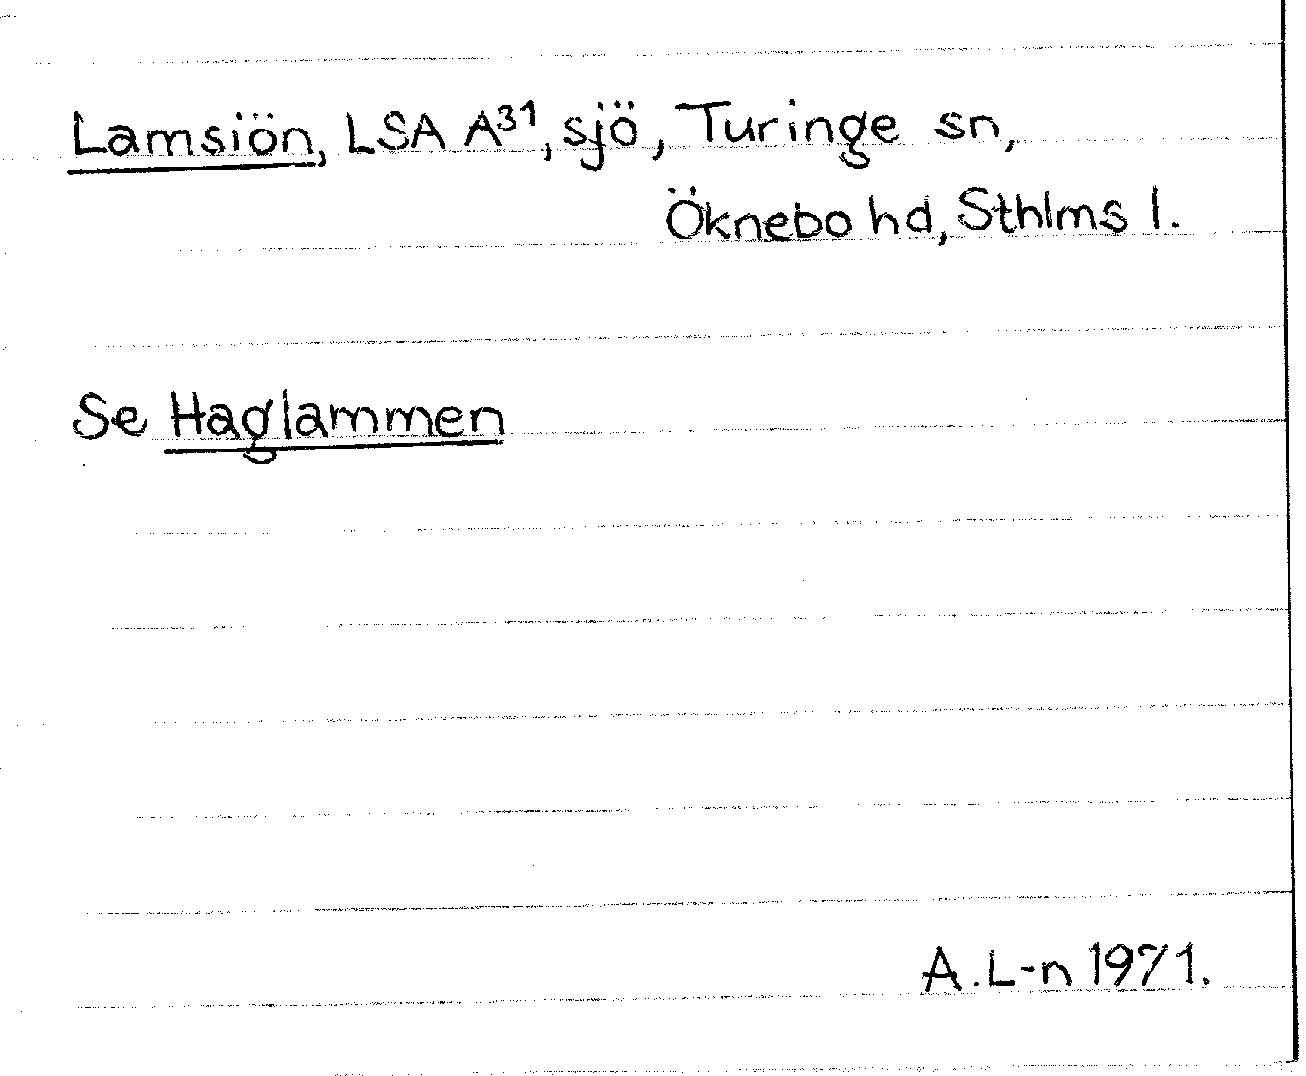 Lamsiön, LSA A³¹, sjö, Turinge sn,
Öknebo hd, Sthlms l.
Se Haglammen
A.L-n 1971.